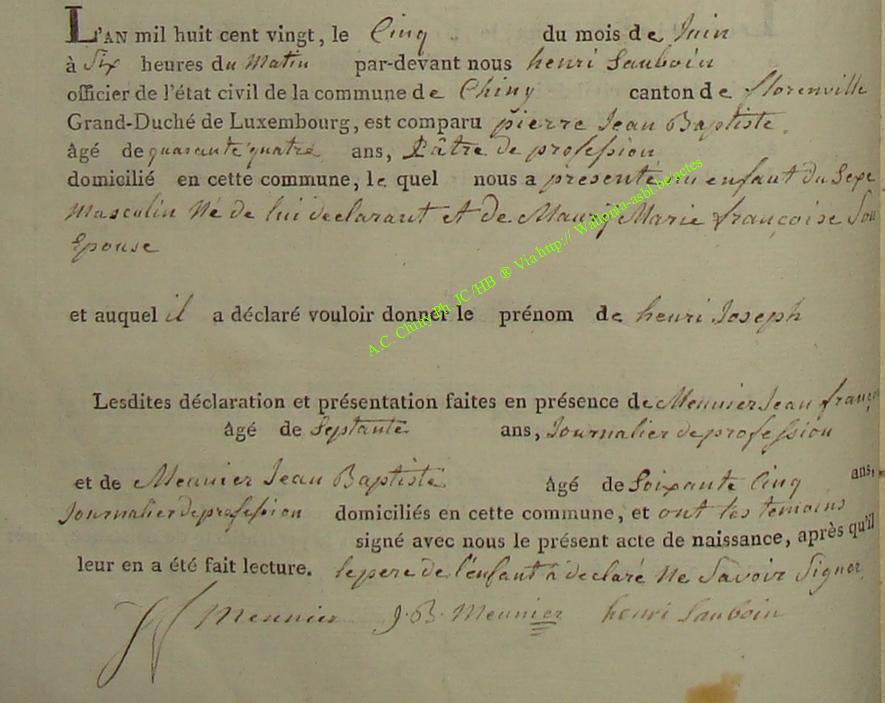 L'AN mil huit cent vingt, le Cinq du mois de Juin
à Six heures du Matin par-devant nous henri Sauboin
officier de l'état civil de la commune de Chiny canton de florenville
Grand-Duché de Luxembourg, est comparu pierre Jean Baptiste
âgé de quarante quatre ans, Pâtre de profession
domicilié en cette commune, le quel nous a presenté un enfant du Sexe
Masculin Né de lui declarant et De Marie françoise Son
Epouse
et auquel il a déclaré vouloir donner le prénom de henri Joseph
Lesdites déclaration et présentation faites en présence de Meunier Jean françois
âgé de Septante ans, Journalier de profession
et de Meunier Jean Baptiste âgé de Soixante Cinq ans,
Journalier de profession domiciliés en cette commune, et ont les temoins
signé avec nous le présent acte de naissance, après qu'il
leur en a été fait lecture. le pere de l'enfant a declaré Ne Savoir Signer
JF Meunier J.B. Meunier henri Sauboin
A.C. Chiny Ph JC/HB ® Via http:// Wallonia-asbl.be/actes